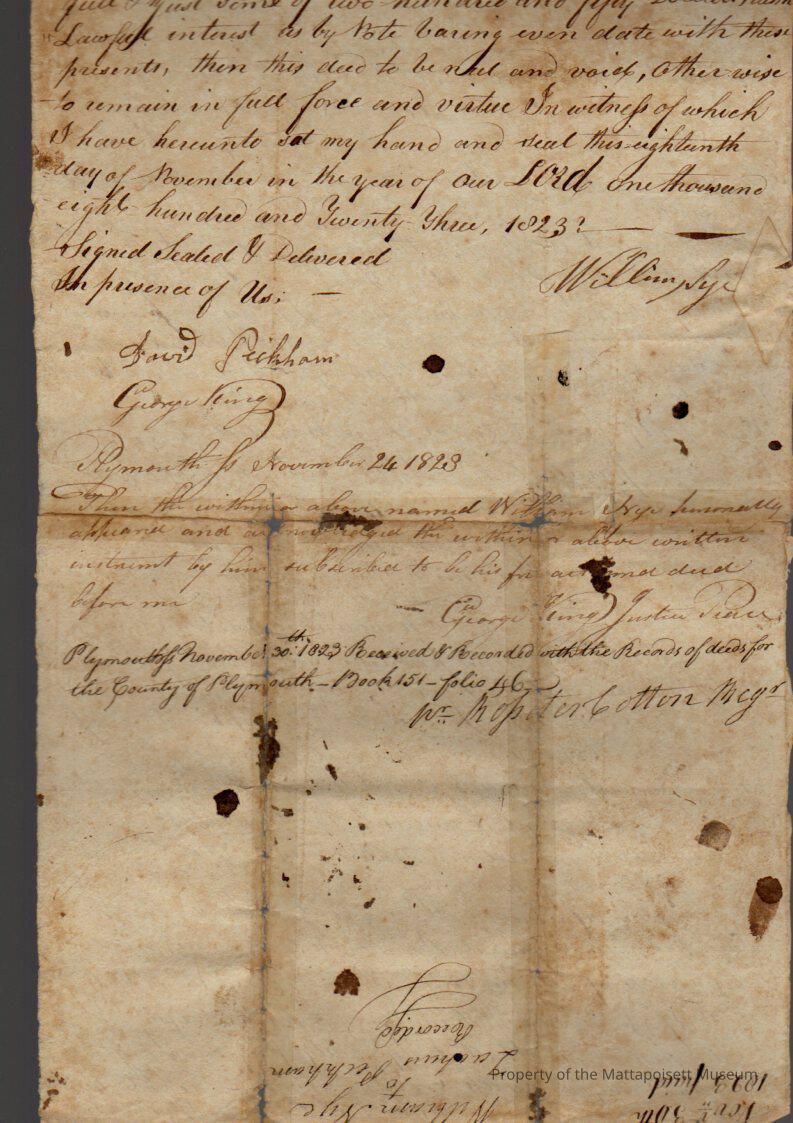 full & just some of two hundred and fifty
Lawful interest as by Note baring even date with these
presents, then this deed to be null and void, Otherwise
to remain in full force and virtue In witness of which
I have hereunto set my hand and seal this eighteenth
day of November in the year of our LORD one thousand
eight hundred and Twenty Three, 1823
Signed Sealed & Delivered
In presence of Us; —
William Nye
David Peckham
George King
Plymouth Ss November 24 1823
Then the within or above named William Nye personally
appeared and acknowledged the within or above written
instrument by him subscribed to be his free act and deed
before me
George King Justice Peace
Plymouth Ss November 30th. 1823 Received & Recorded with the Records of deeds for
the County of Plymouth – Book 151 – folio 46
Wm Rossiter Cotton Regr
William Nye
to
Peckham
Recorded
Novr 30th
1823
Property of the Mattapoisett Museum